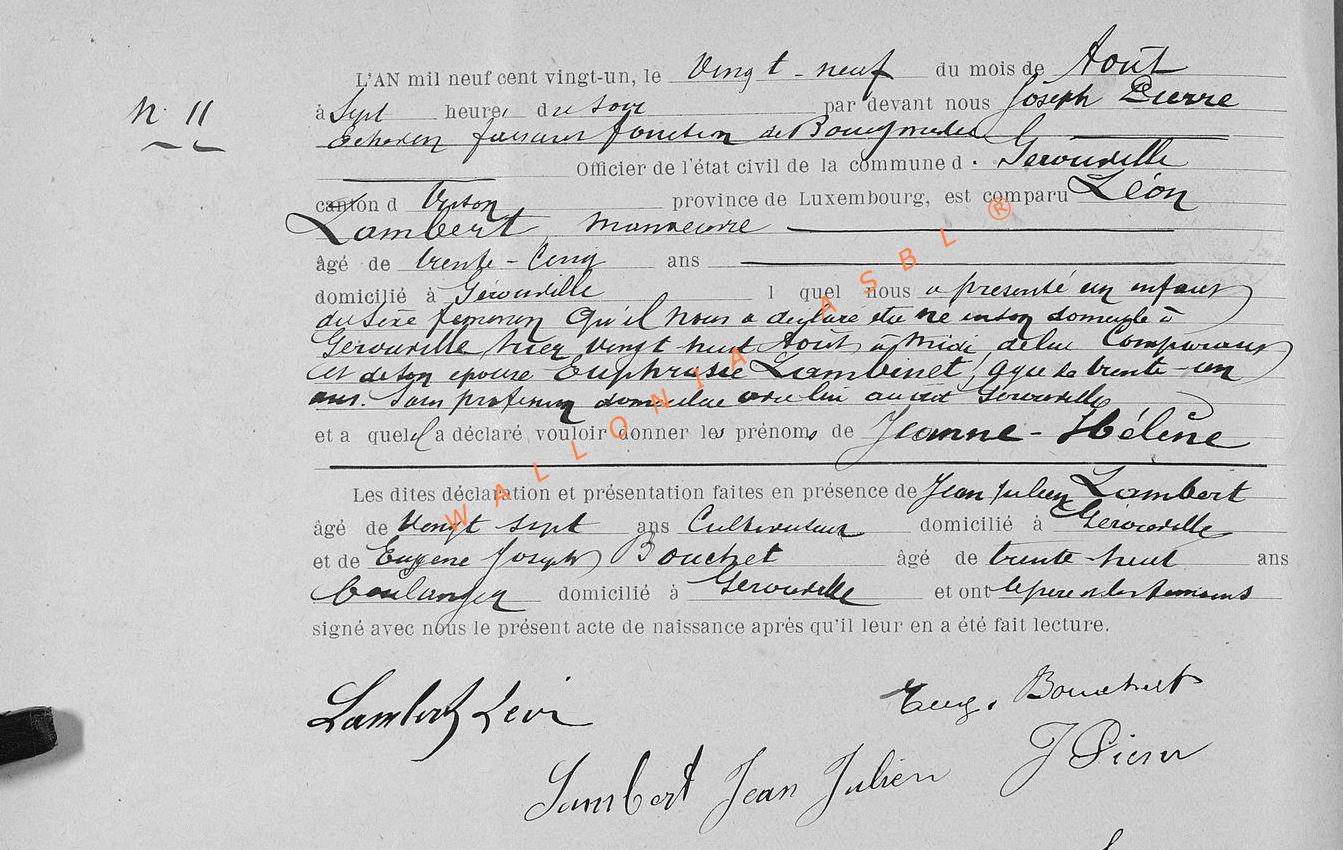 L'AN mil neuf cent vingt-un, le Vingt-neuf du mois de Août
N° 11
à Sept heures du soir par devant nous Joseph Pierre
Echevin faisant fonction de Bourgmestre
Officier de l'état civil de la commune d. Gérouville
canton d Virton province de Luxembourg, est comparu Léon
Lambert, manoeuvre
âgé de trente-cinq ans
domicilié à Gérouville l quel nous a présenté un enfant
du sexe féminin qu'il nous a déclaré être né en son domicile à
Gérouville hier vingt huit Août à midi, de lui Comparant
et de son épouse Euphrasie Lambinet, âgée de trente-un
ans. Sans profession domiciliée avec lui audit Gérouville
et a quel a déclaré vouloir donner les prénoms de Jeanne-Hélène
Les dites déclaration et présentation faites en présence de Jean Julien Lambert
âgé de Vingt sept ans Cultivateur domicilié à Gérouville
et de Eugène Joseph Bouchet âgé de trente-huit ans
boulanger domicilié à Gérouville et ont le père et les témoins
signé avec nous le présent acte de naissance après qu'il leur en a été fait lecture.
Lambert Léon
Eug. Bouchet
Lambert Jean Julien
J Pierre
WALLONIA ASBL ®